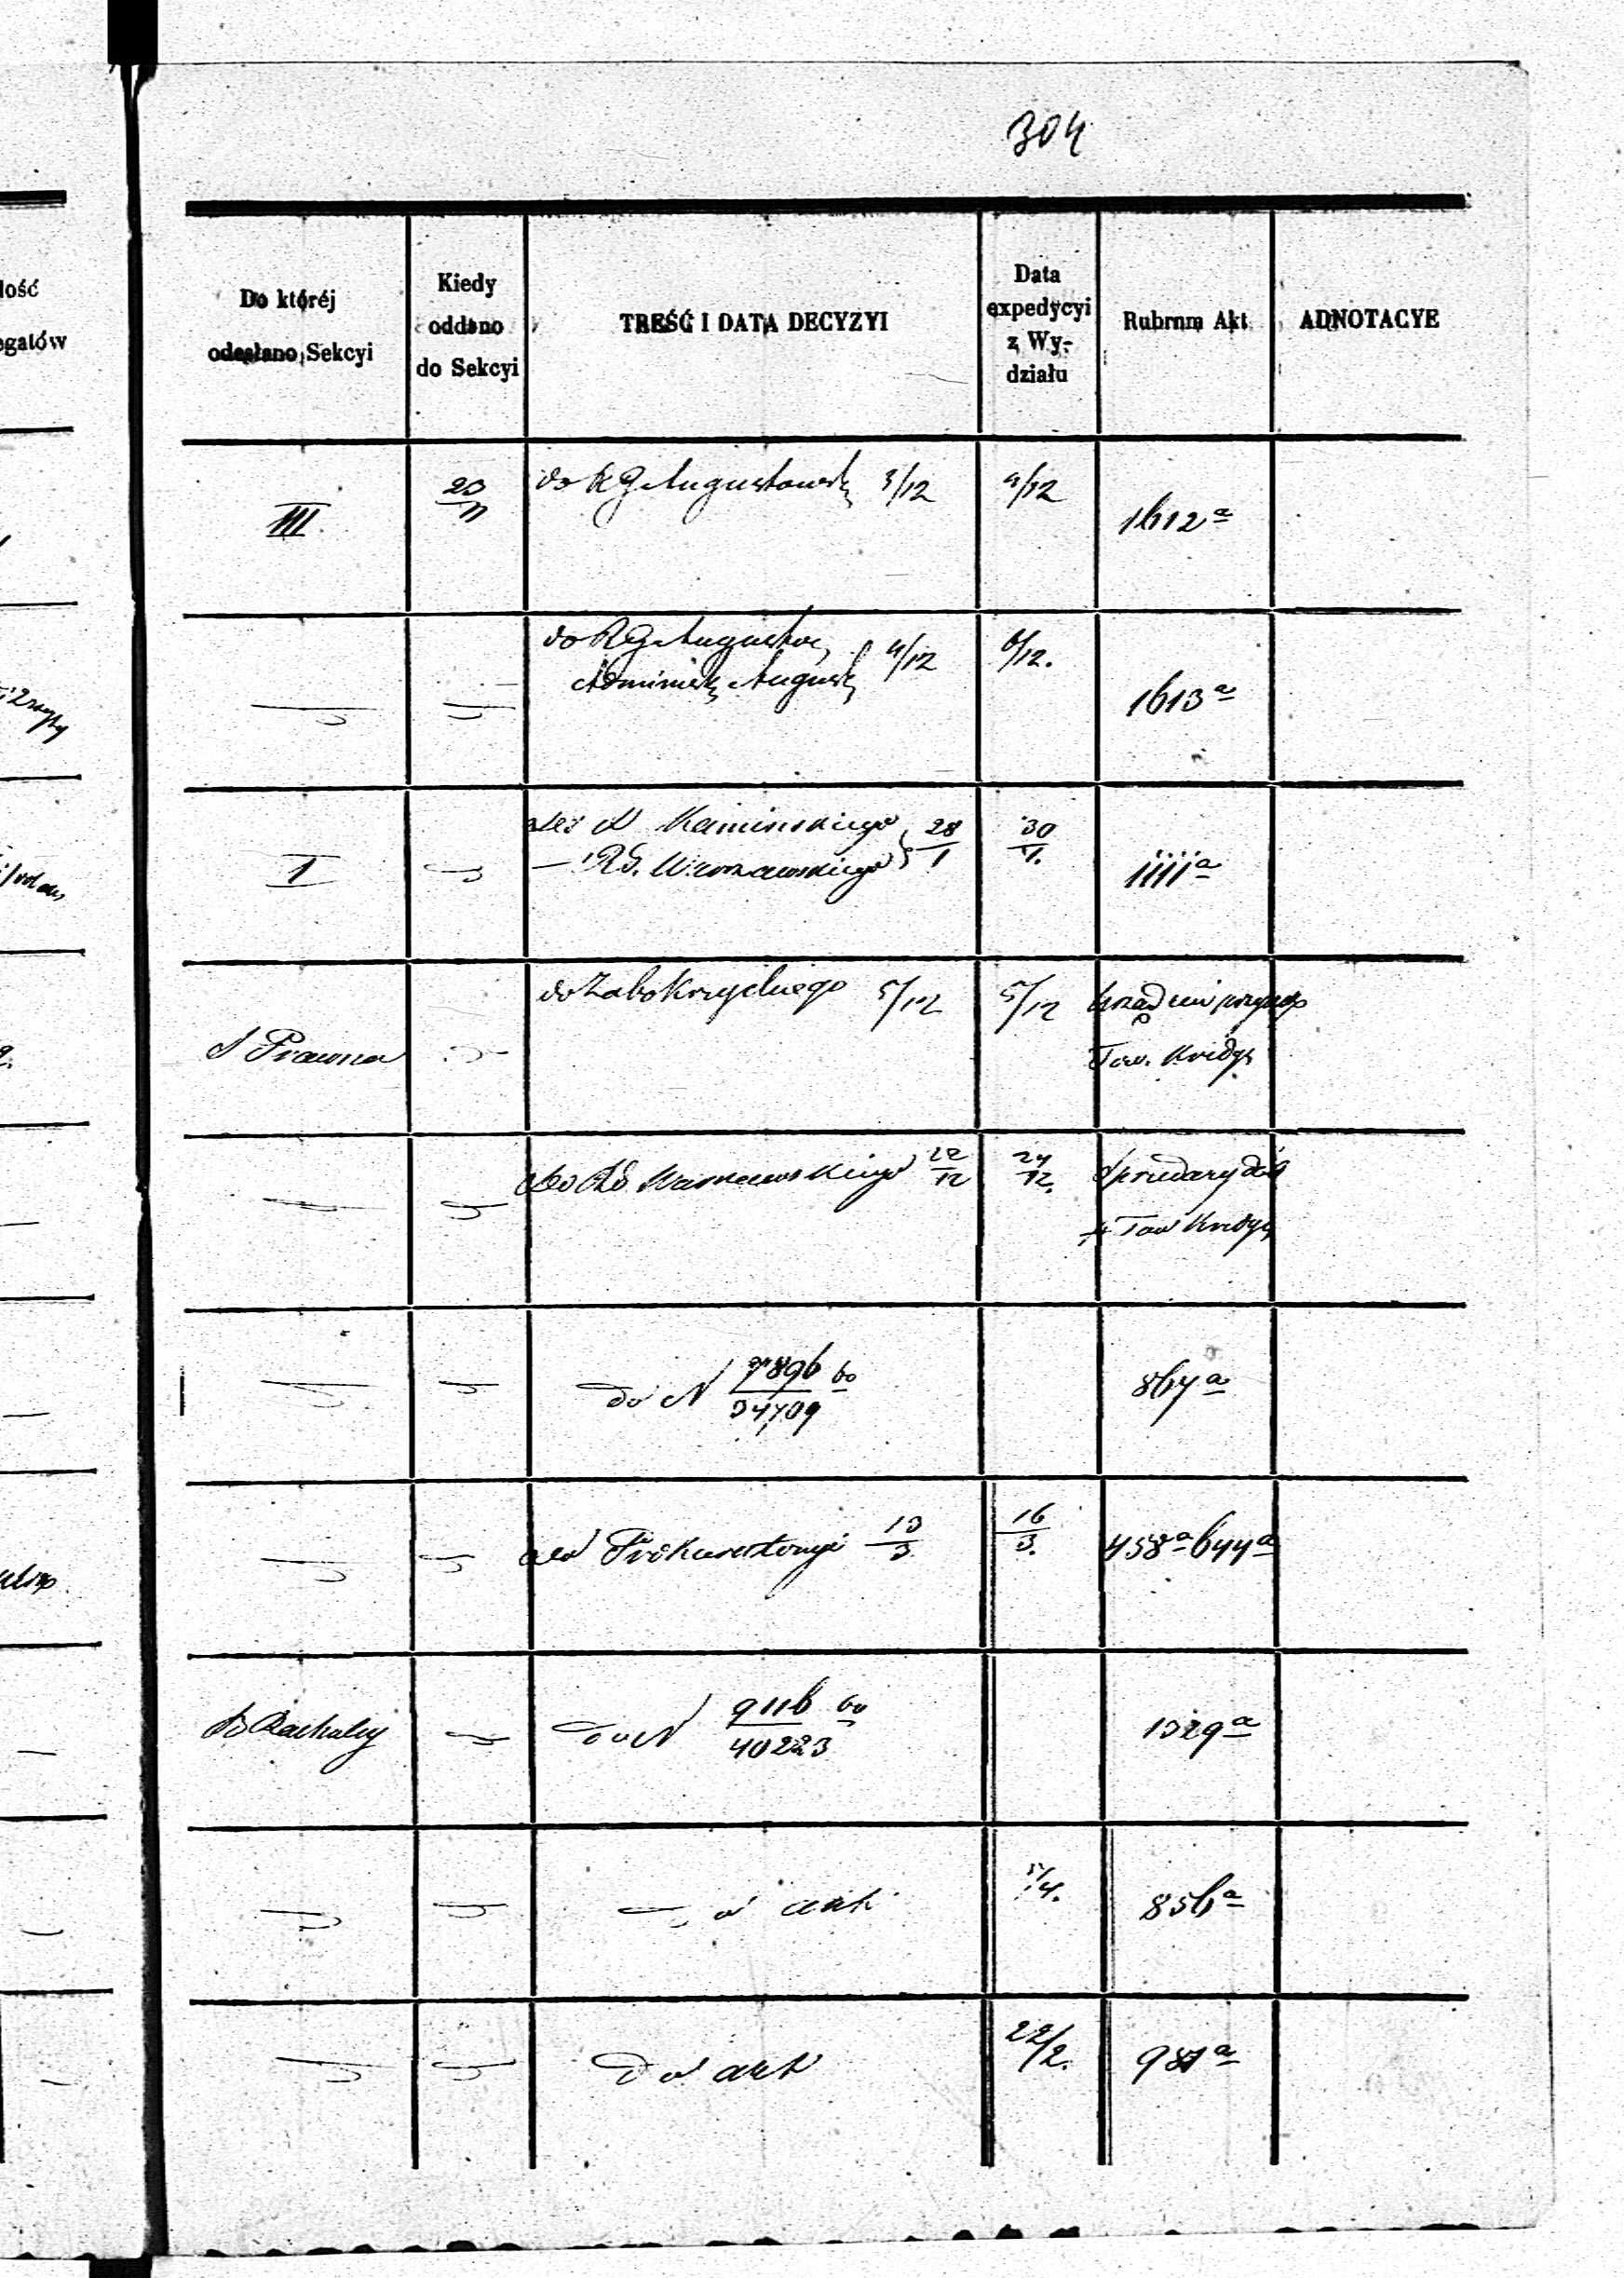 304
lość
egatów
Do któréj
odesłano Sekcyi
Kiedy
oddano
do Sekcyi
TREŚĆ I DATA DECYZYI
Data
expedycyi
z Wy-
działu
Rubrum Akt
ADNOTACYE
III
20/11
do RG Augustowsk 3/12
4/12
1612 a
do RG Augustow
Administ August 4/12
6/12.
1613 a
I
Kaminskiego
RG. Warszawskiego 28/1
30/1.
1111 a
S Prawna
do Zabokrzyckiego 5/12
5/12
Tow. Kredy
do RG Warszawskiego 22/12
24/12.
Sprzedaży dób
Tow Kredy
do N 7896/34709 60
864 a
do Prokuratoryi 13/3
16/3.
458 a 644 a
B Rachuby
do N 9116/40223 60
1329 a
do akt
/4.
856 a
do akt
22/2.
981 a